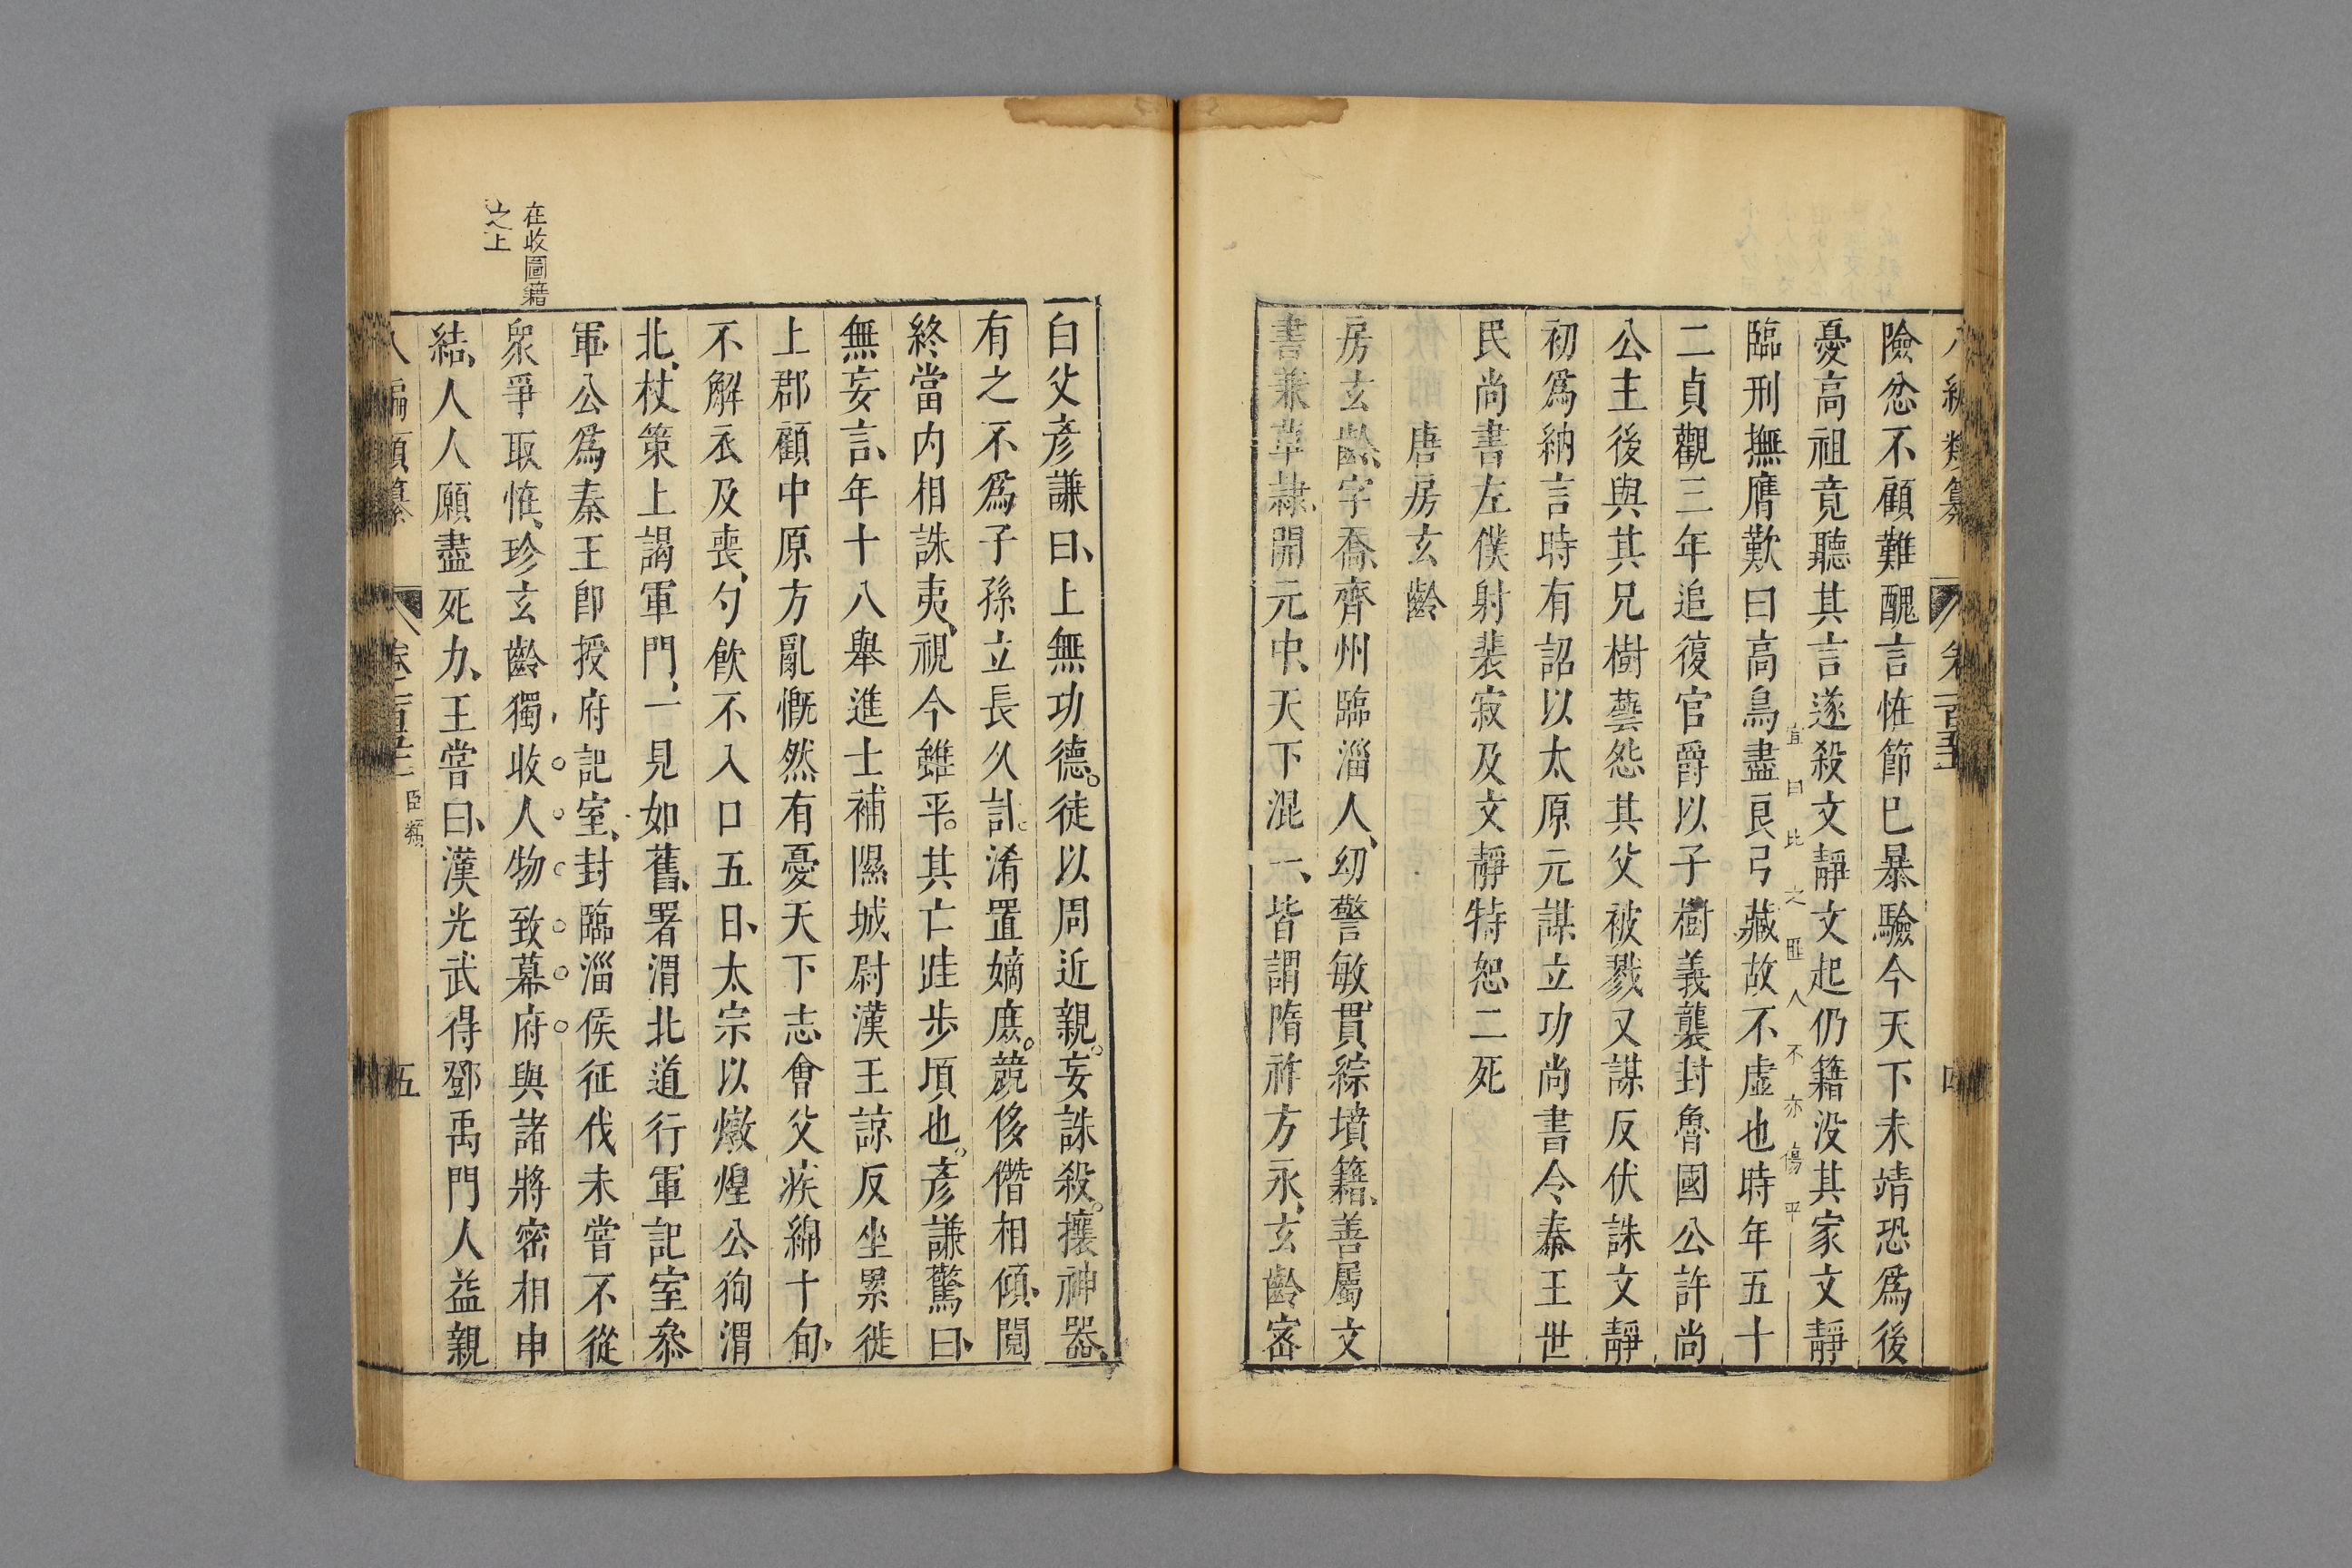 險忿不顧難醜言怪節巳暴驗今天下未靖恐爲後
憂高祖竟聽其言遂殺文靜文起仍籍没其家文靜
宜曰比之匪人不亦傷乎
臨刑撫膺歎曰高鳥盡良弓藏故不虛也時年五十
二貞觀三年追復官爵以子樹義襲封魯國公許尚
公主後與其兄樹藝怨其父被戮又謀反伏誅文靜
初爲納言時有詔以太原元謀立功尚書令秦王世
民尚書左僕射裴寂及文靜特恕二死
唐房玄齡
房玄齡、字喬、齊州臨淄人、幼警敏、貫綜墳籍、善屬文
書兼草隷、開元中、天下混一、皆謂隋祚方永、玄齡密
白父彥謙曰、上無功德。徒以周近親。妄誅殺。攘神器、
有之不爲子孫立長久計。淆置嫡庶。競侈僭相傾、閱
終當内相誅夷、視今雖平。其亡跬步頃也。彥謙驚曰、
無妄言、年十八舉進士補隰城尉漢王諒反坐累徙
上郡顧中原方亂慨然有憂天下志會父疾綿十旬、
不解衣及喪、勺飮不入口五日、太宗以燉煌公徇渭
北、杖策上謁軍門、一見如舊、署渭北道行軍記室參
軍公爲秦王卽授府記室、封臨淄侯征伐未嘗不從
在收圖籍
之上
衆爭取恠、珍玄齡獨收人物致幕府與諸將密相申
結、人人願盡死力、王嘗曰、漢光武得鄧禹門人益親
臣類
五